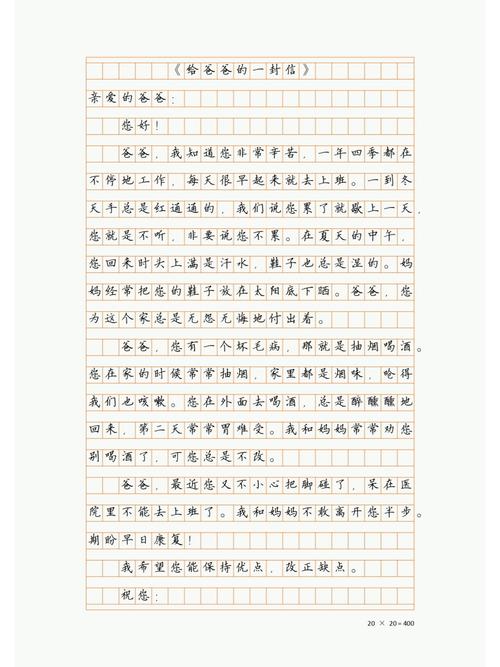 《给爸爸的一封信》
亲爱的爸爸：
您好！
爸爸，我知道您非常辛苦，一年四季都在
不停地工作，每天很早起来就去上班。一到冬
天手总是红通通的，我们说您累了就歇上一天，
您就是不听，非要说您不累。在夏天的中午，
您回来时头上满是汗水，鞋子也总是湿的。妈
妈经常把您的鞋子放在太阳底下晒。爸爸，您
为这个家总是无怨无悔地付出着。
爸爸，您有一个坏毛病，那就是抽烟喝酒。
您在家的时候常常抽烟，家里都是烟味，呛得
我们也咳嗽。您在外面去喝酒，总是醉醺醺地
回来，第二天常常胃难受。我和妈妈常常劝您
别喝酒了，可您总是不改。
爸爸，最近您又不小心把脚碰了，呆在医
院里不能去上班了。我和妈妈不敢离开您半步。
期盼早日康复！
我希望您能保持优点，改正缺点。
祝您：
20 × 20=400